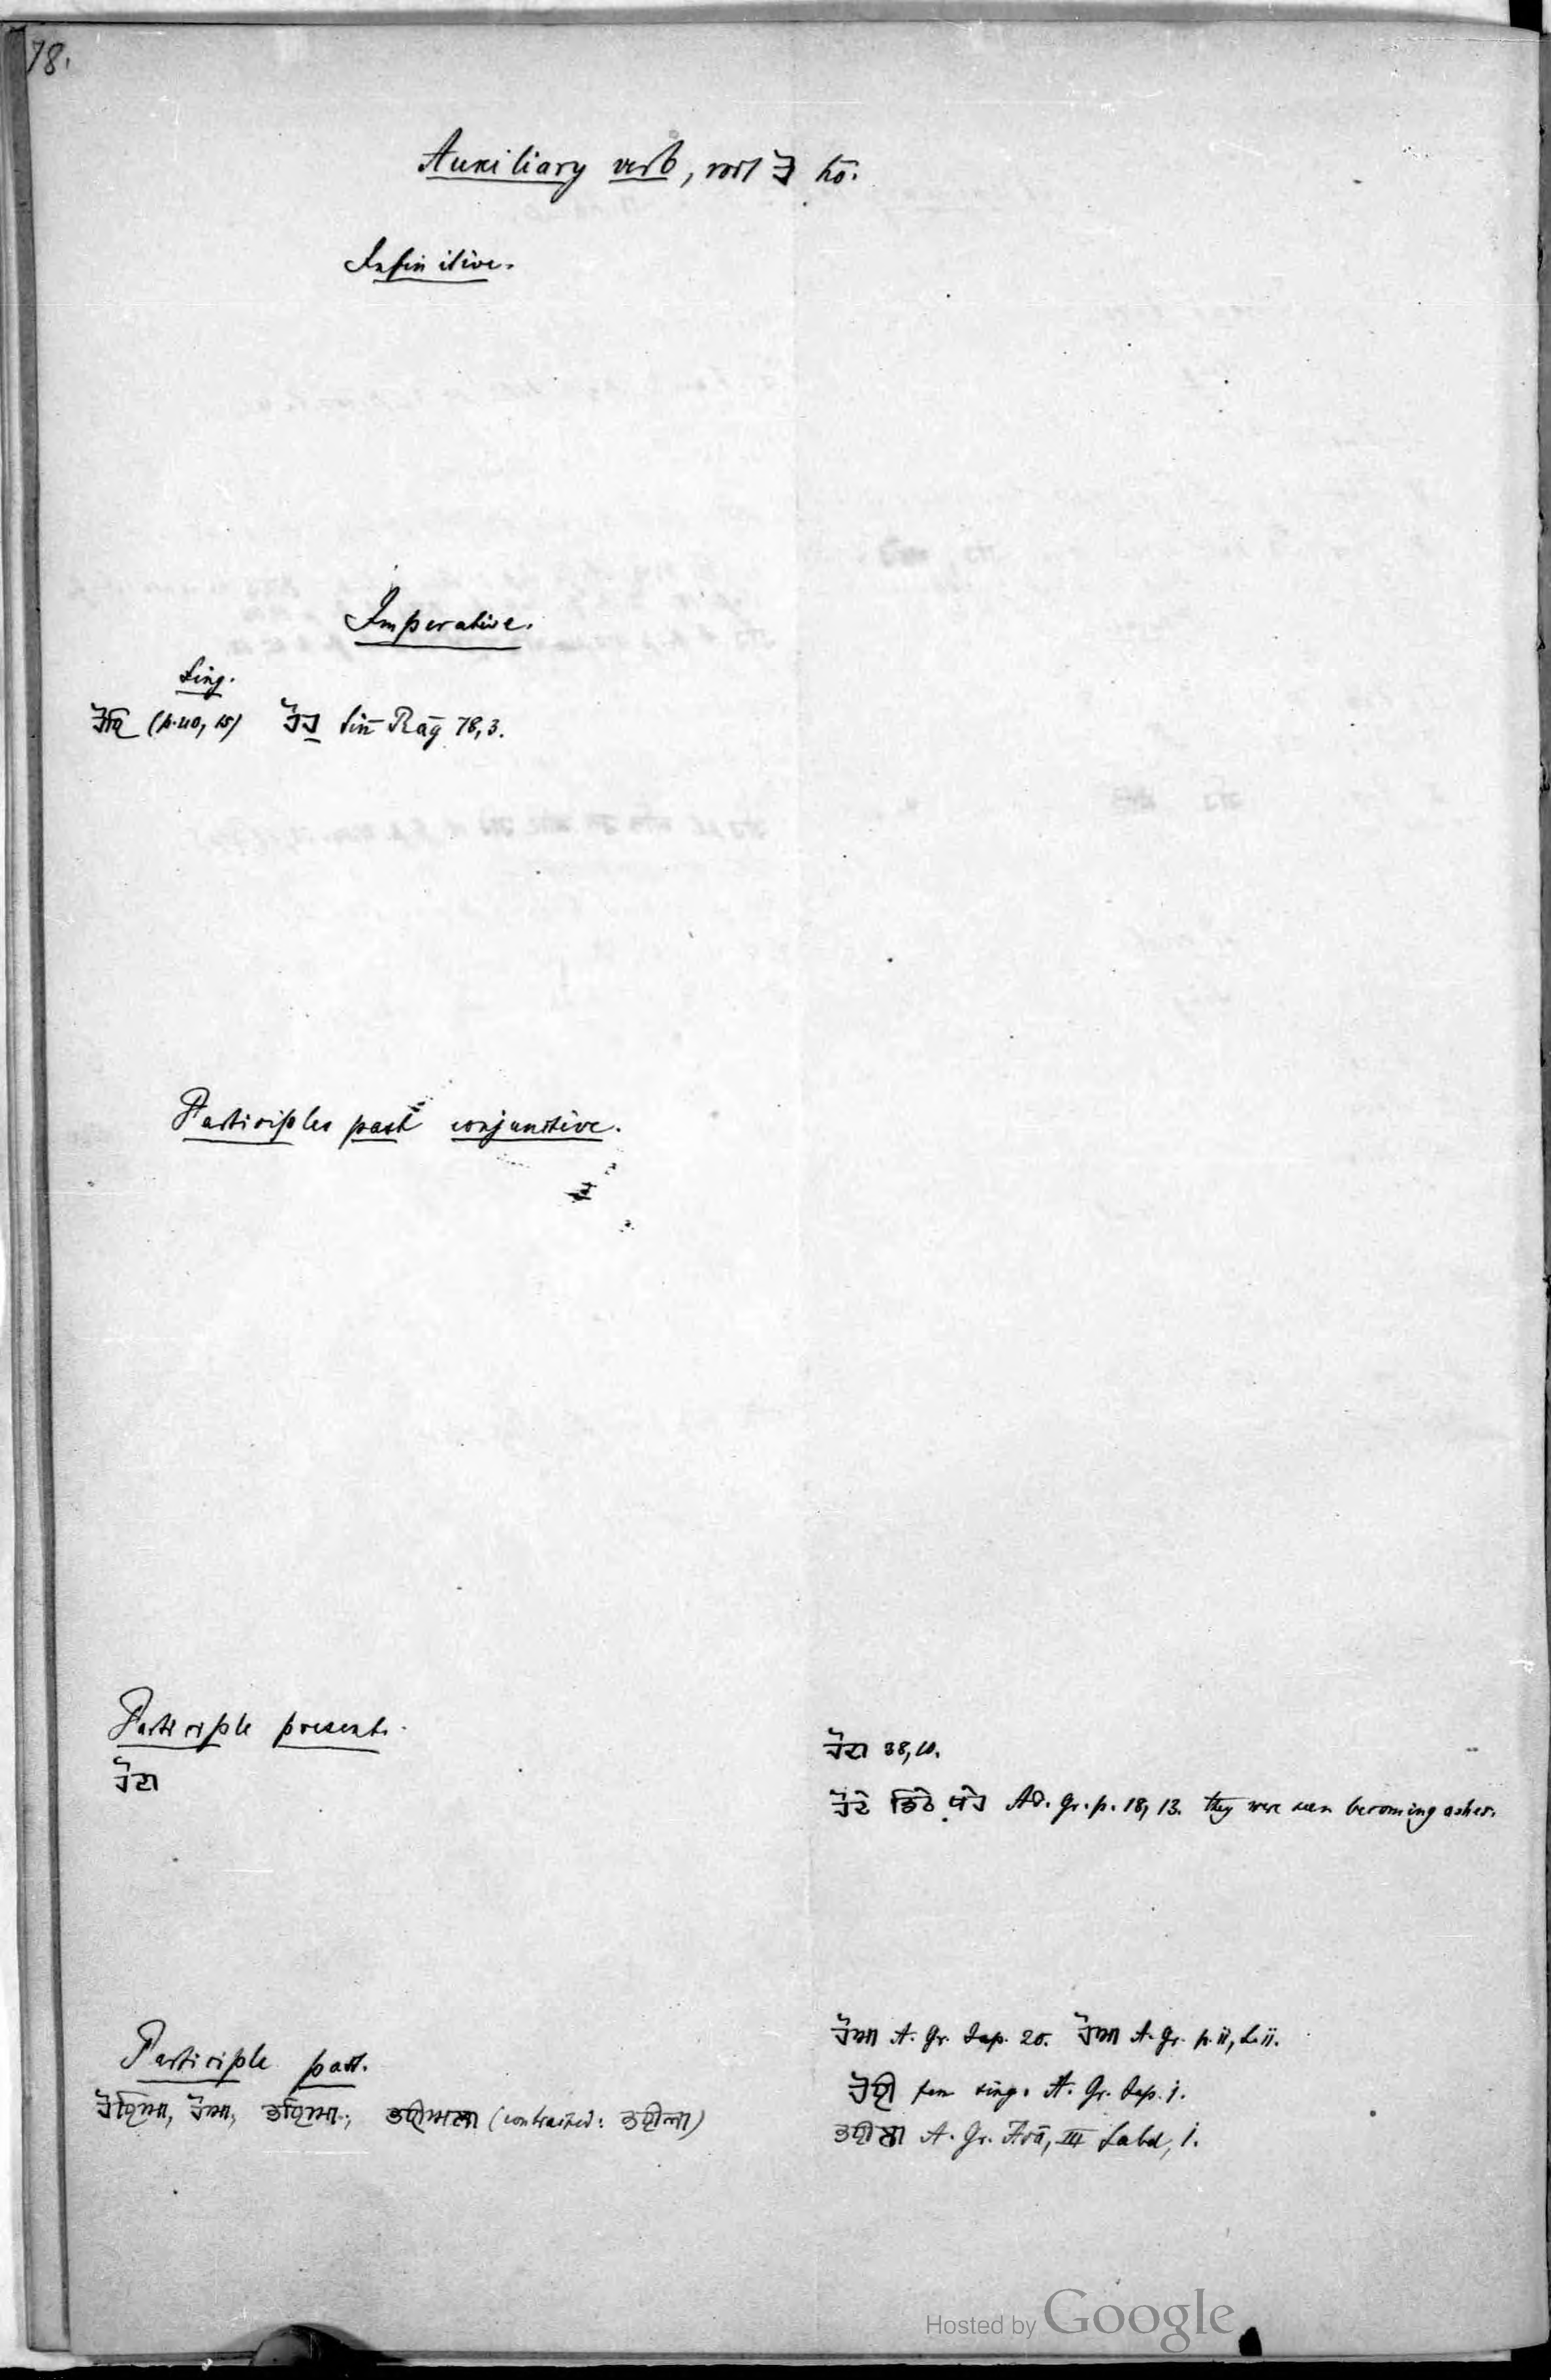 78.
Auxiliary verb, root ਹੋ hō.
Infinitive.
Imperative.
Sing.
ਹੋਹਿ (p. 40, 15) ਹੋਹੁ Siri Rāg 78,3.
Participles past conjunctive.
Participle present.
ਹੋਦਾ
ਹੋਦਾ 38,10.
ਹੋਦੇ ਡਿਠੇ ਖੇਹ Ad. Gr. p. 18, 13. they were seen becoming ashes.
Participle past.
ਹੋਇਆ, ਹੋਆ, ਭਇਆ, ਭਈਅਲਾ (contracted: ਭਈਲਾ)
ਹੋਆ A. Gr. Jap. 20. ਹੋਆ A. Gr. p. ii, L. ii.
ਹੋਈ fem sing. A. Gr. Jap. i.
ਭਈਲਾ A. Gr. III Sabd, 1.
Hosted by Google